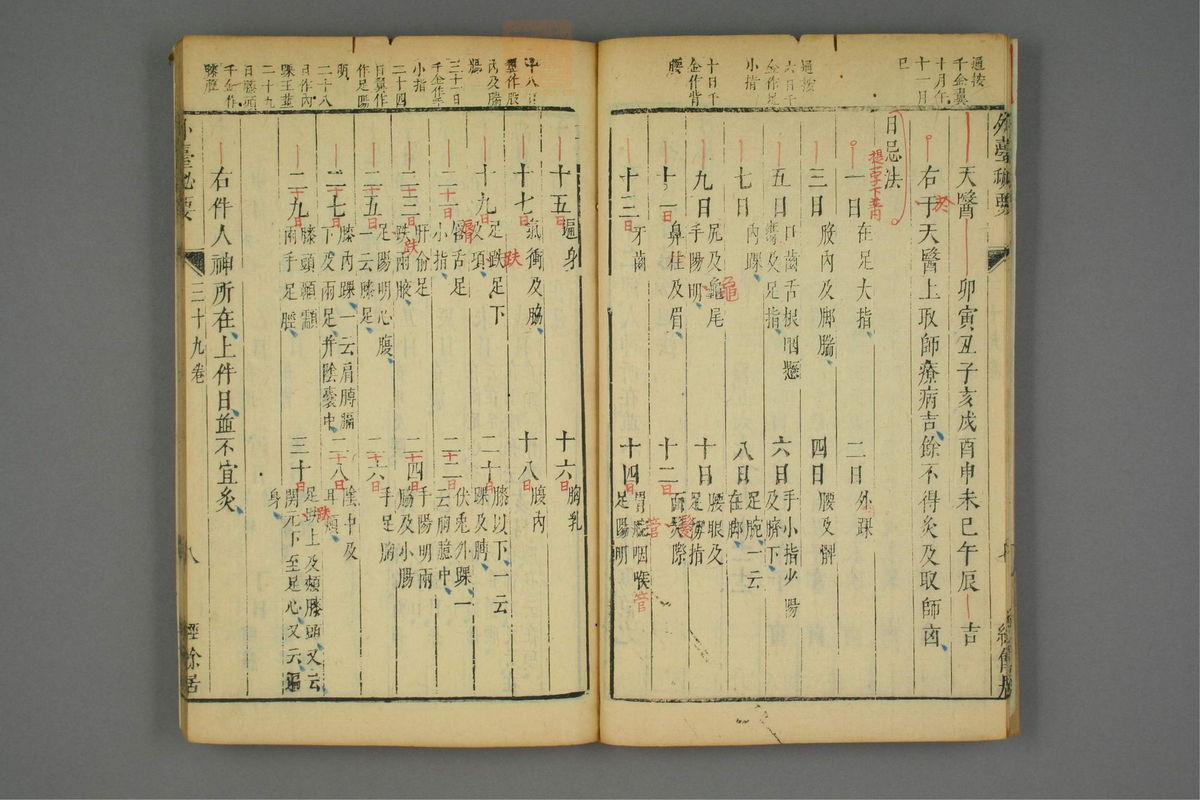 通按
千金翼
十月午
十一月
巳
通按
六日千
金作足
小指
十日千
金作背
腰
天醫 卯寅丑子亥戌酉申未巳午辰 吉
右于天醫上取師療病吉餘不得灸及取師凶
日忌法
一日在足大指 二日外踝
三日股內及脚腨 四日腰及髀
五日口齒舌根咽懸癰及足指 六日手小指少陽及臍下足腕一云
七日內踝 八日在脚
九日尻及龜尾手陽明 十日腰眼及足拇指
十一日鼻柱及眉 十二日面髮際
十三日牙齒 十四日胃脘咽喉足陽明
外臺秘要
三十九卷
八
經餘居
十五日遍身 十六日胸乳
十七日氣衝及脇 十八日腹內
十九日足趺足下及項 二十日膝以下一云踝及膊
二十一日脣舌足小指 二十二日伏兎外踝一云胸臆中
二十三日肝俞足趺兩腋 二十四日手陽明兩脇及小腸
二十五日足陽明心腹一云膝足 二十六日手足胸
二十七日膝內踝一云肩膊膈下及兩足并陰囊中 二十八日陰中及耳頰
二十九日膝頭顳顬兩手足脛 三十日足趺上及頰膝頭又云關元下至足心又云遍身
右件人神所在上件日並不宜灸
三十一日
千金作手
小指
二十四
日翼作
作足陽
明
二十八
日作內
踝王並
二十九
日膝頭
千金作
膝脛